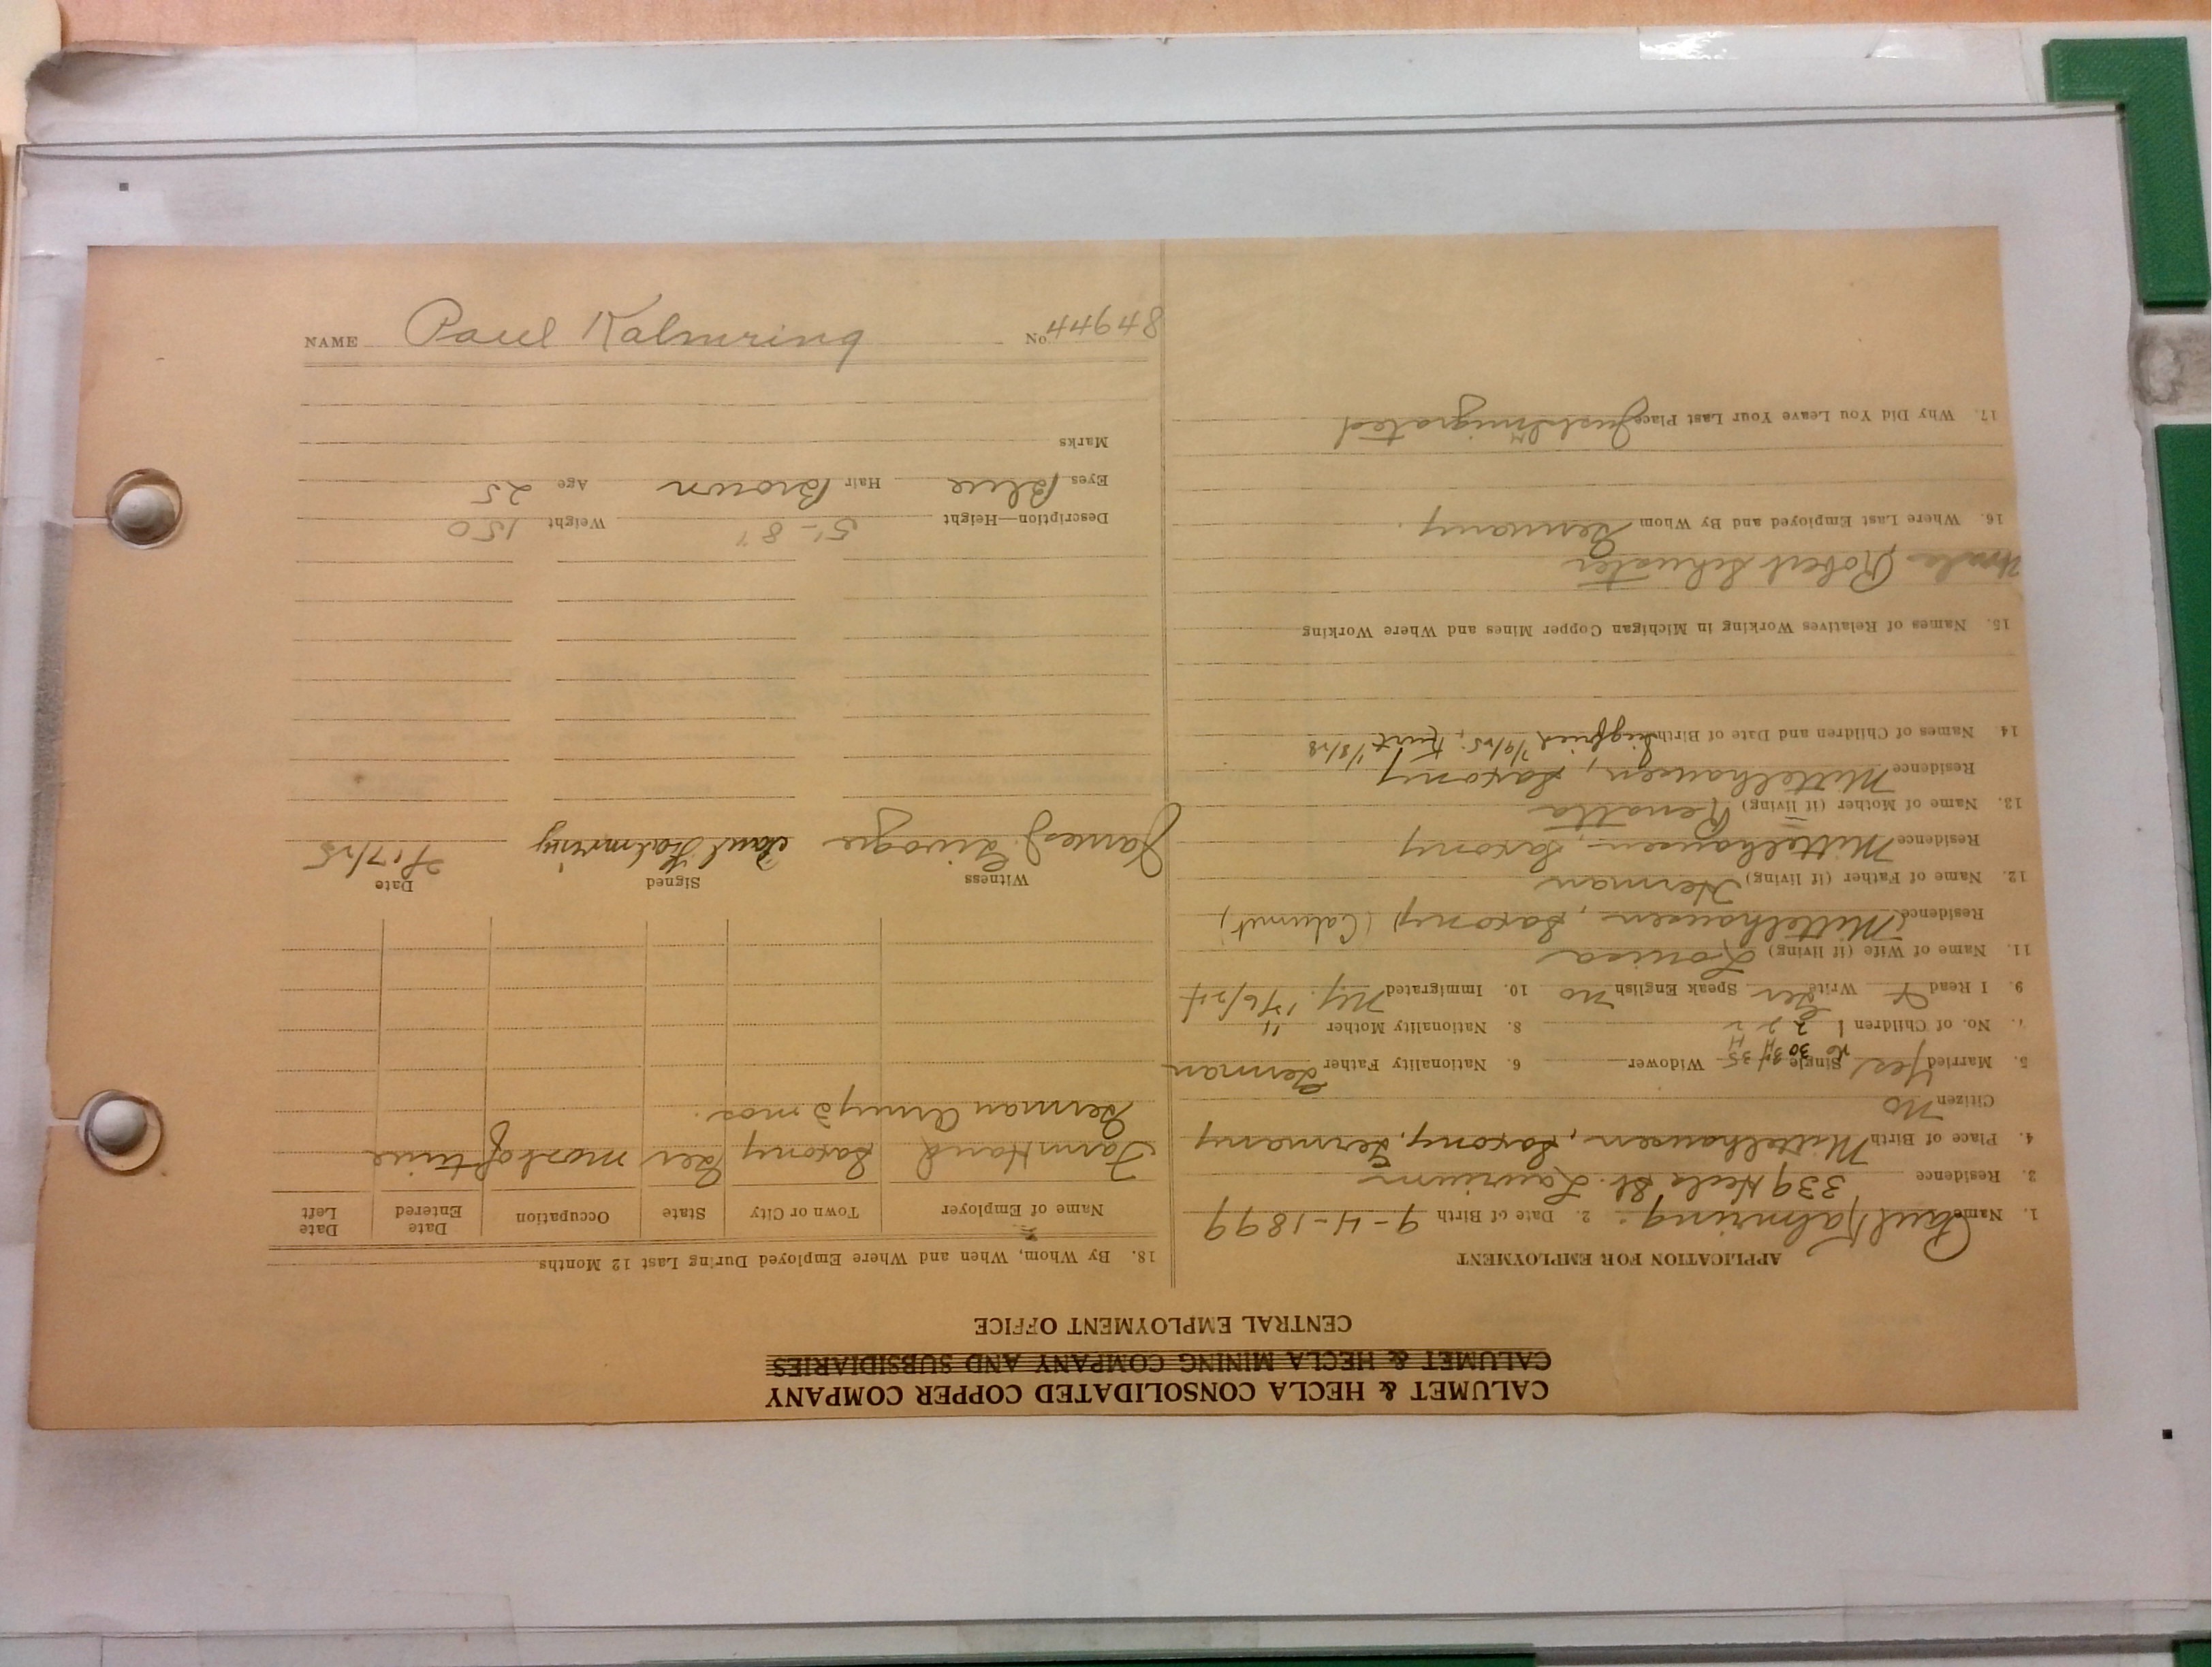 CALUMET & HECLA CONSOLIDATED COPPER COMPANY
CALUMET & HECLA MINING COMPANY AND SUBSIDIARIES
CENTRAL EMPLOYMENT OFFICE
APPLICATION FOR EMPLOYMENT
1. Name Paul Kalmring. 2. Date of Birth 9-4-1899
3. Residence 339 Hecla St. Laurium
4. Place of Birth Mittelhausen, Saxony, Germany
Citizen no
5. Married Yes Single Widower 6. Nationality Father German
7. No. of Children 1 2 2 2 8. Nationality Mother "
9. I Read Write Ger Speak English no 10. Immigrated N.Y.
11. Name of Wife (if living) Louisa
Residence Mittelhausen, Saxony (Calumet)
12. Name of Father (if living) Herman
Residence Mittelhausen, Saxony
13. Name of Mother (if living) Renatta
Residence Mittelhausen, Saxony
14. Names of Children and Date of Birth Siegfried 7/9/25, Kurt 1/8/28
15. Names of Relatives Working in Michigan Copper Mines and Where Working
Uncle Robert Schuster
16. Where Last Employed and By Whom Germany.
17. Why Did You Leave Your Last Place Just Immigrated
18. By Whom, When and Where Employed During Last 12 Months
Name of Employer Town or City State Occupation Date Entered Date Left
Farm Hand Saxony Ger most of time
German Army 3 mos.
Witness Signed Date
James J. Paul Kalmring 2/17/25
Description—Height 5'-8" Weight 150
Eyes Blue Hair Brown Age 25
Marks
NAME Paul Kalmring No. 84944